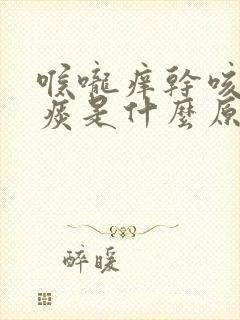 喉嚨痒幹咳
痰是什麼原
醉暖